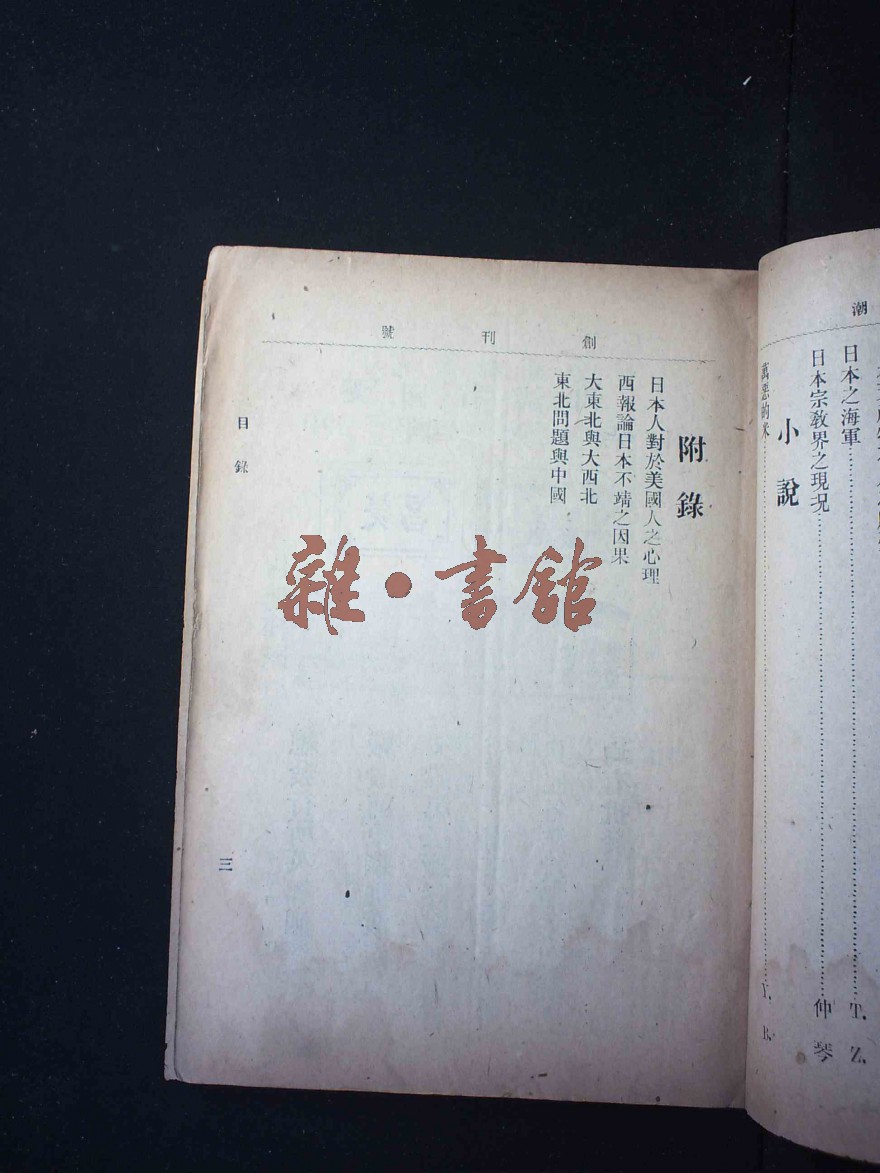 潮
日本之海軍……T. Z.
日本宗教界之現況……仲琴
小說
萬惡的米……Y. B.
創刊號
附錄
日本人對於美國人之心理
西報論日本不靖之因果
大東北與大西北
東北問題與中國
目錄
三
雜·書館